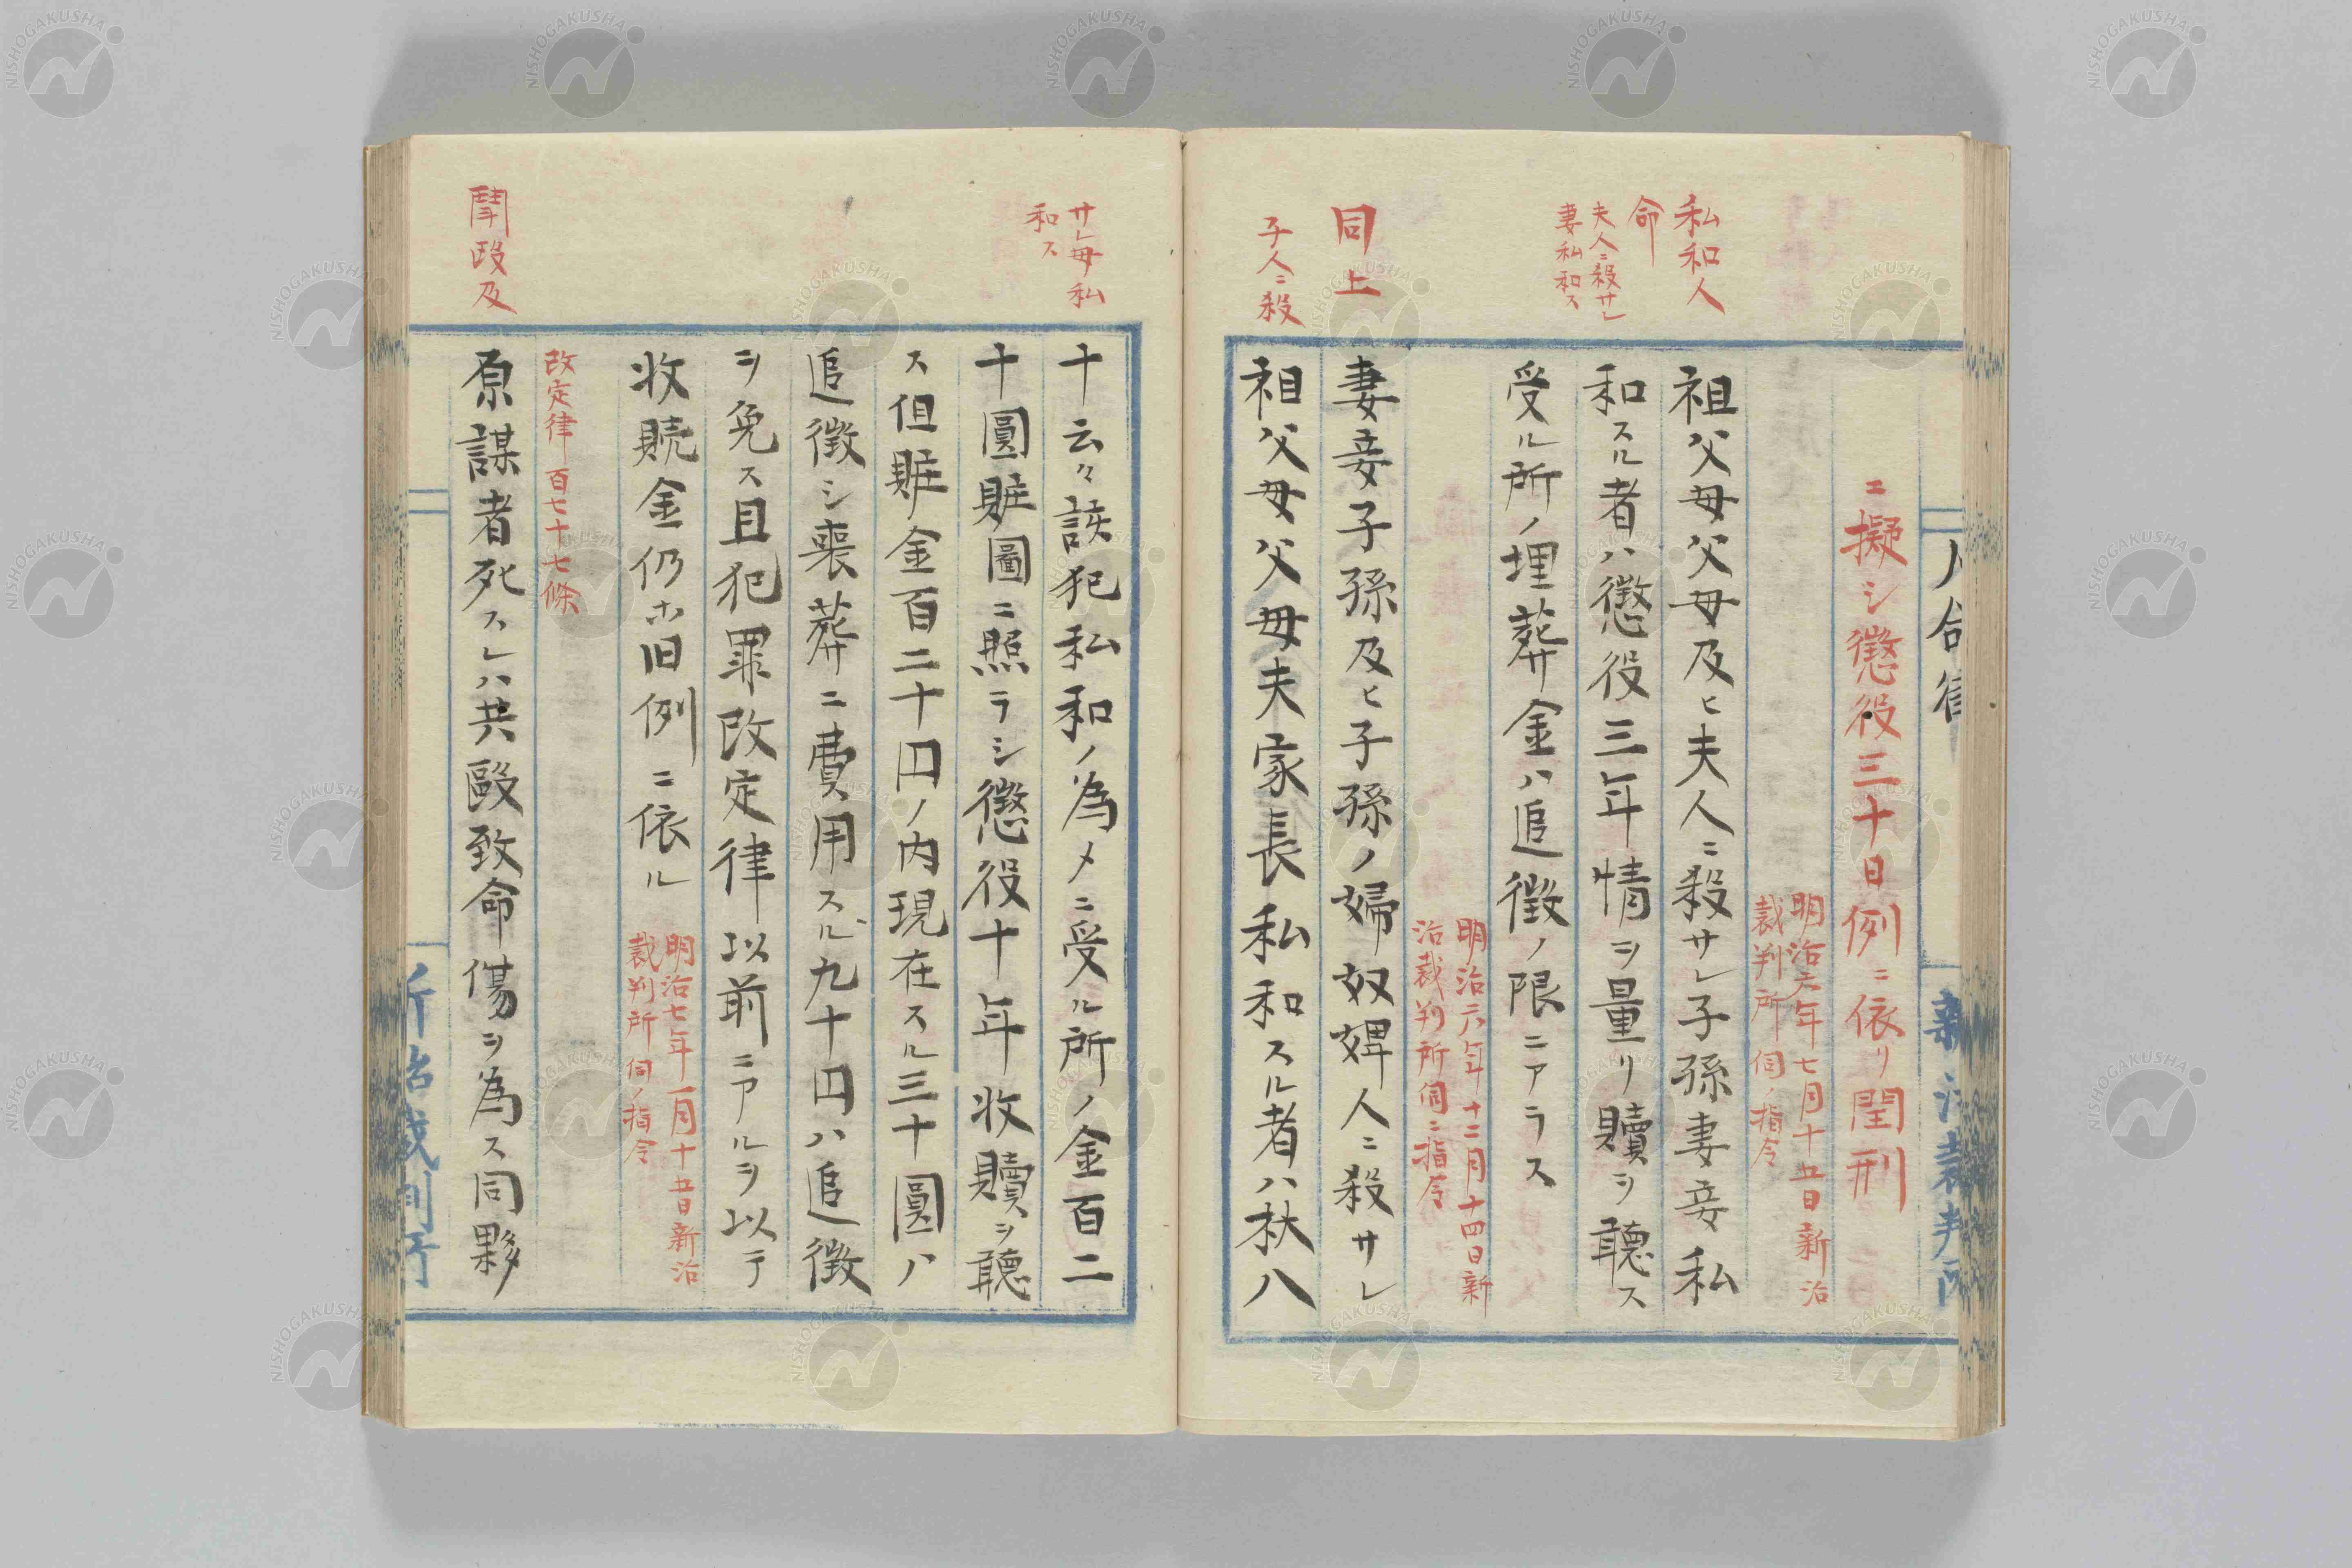 ニ擬シ懲役三十日例ニ依リ閏刑
明治六年七月十五日新治
裁判所伺ノ指令
私和人
命
夫人ニ殺サレ
妻私和ス
祖父母父母及ヒ夫人ニ殺サレ子孫妻妾私
和スル者ハ懲役三年情ヲ量リ贖ヲ聽ス
受ル所ノ埋葬金ハ追徴ノ限ニアラス
明治六年十二月十四日新
治裁判所伺ニ指令
同上
子人ニ殺
妻妾子孫及ヒ子孫ノ婦奴婢人ニ殺サレ
祖父母父母夫家長私和スル者ハ杖八
サレ母私
和ス
十云々該犯私和ノ為メニ受ル所ノ金百二
十圓賍圖ニ照ラシ懲役十年收贖ヲ聽
ス但賍金百二十円ノ内現在スル三十圓ハ
追徴シ喪葬ニ費用スル九十円ハ追徴
ヲ免ス且犯罪改定律以前ニアルヲ以テ
收贖金仍ホ旧例ニ依ル
明治七年一月十五日新治
裁判所伺ノ指令
改定律百七十七條
鬪毆及
原謀者死スレハ共毆致命傷ヲ為ス同夥
新治裁判所